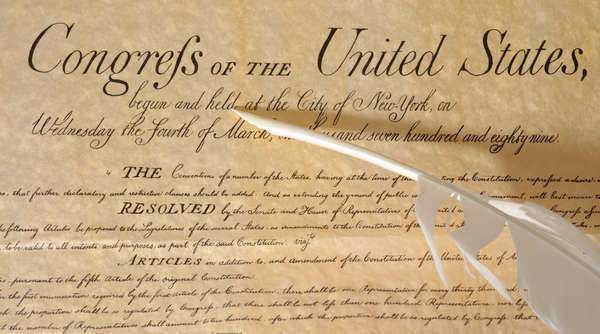 Congreſs OF THE United States,
begun and held at the City of New-York, on
Wednesday the Fourth of March, thousand seven hundred and eighty nine.
THE Conventions of a number of the States, having at the time of the Constitution, expreſsed a desire
that further declaratory and restrictive clauses should be added: And as extending the ground of public will best insure
RESOLVED by the Senate and House of Representatives of the
following Articles be proposed to the Legislatures of the several States, as amendments to the Constitution of
to be valid to all intents and purposes, as part of the said Constitution. viz.t
ARTICLES in addition to, and Amendment of the Constitution of the United States of
pursuant to the fifth Article of the original Constitution.
the first enumeration required by the first Article of the Constitution, there shall be one Representative for every thirty
proportion shall be so regulated by Congreſs, that there shall be not leſs than one hundred Representatives, nor
the number of Representatives shall amount to two hundred, after which the proportion shall be so regulated by Congreſs, that